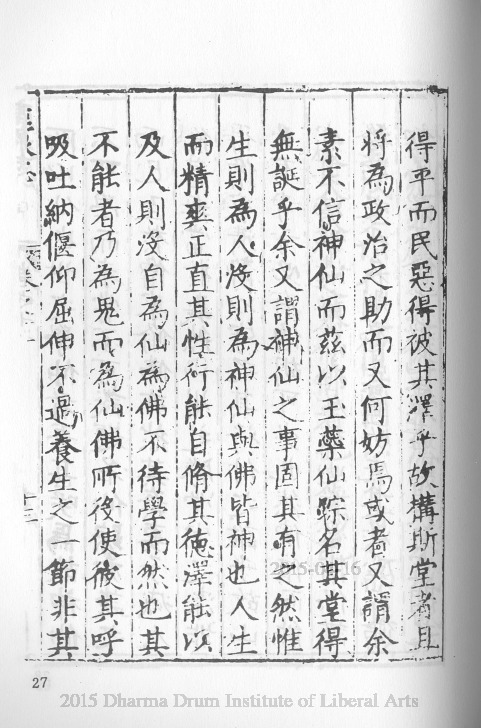 得平而民惡得被其澤乎故搆斯堂者且
將為政治之助而又何妨焉或者又謂余
素不信神仙而茲以玉蘂仙踪名其堂得
無誕乎余又謂神仙之事固其有之然惟
生則為人沒則為神仙與佛皆神也人生
而精爽正直其性行能自脩其德澤能以
及人則沒自為仙為佛不待學而然也其
不能者乃為鬼而為仙佛所後使彼其呼
吸吐納偃仰屈伸不過養生之一節非其
卷之
十三
27
2015 Dharma Drum Institute of Liberal Arts